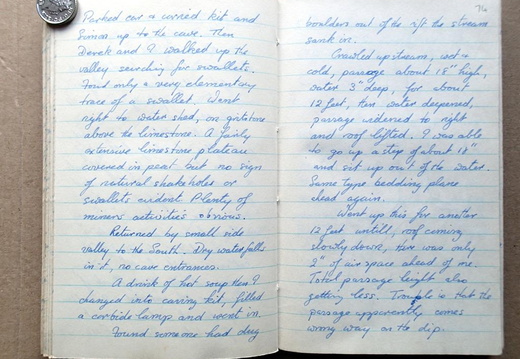 Parked car & carried kit and
Simon up to the cave. Then
Derek and I walked up the
valley searching for swallets.
Found only a very elementary
trace of a swallet. Went
right to water shed, on gritstone
above the limestone. A fairly
extensive limestone plateau
covered in peat but no sign
of natural shakeholes or
swallets evident. Plenty of
miners activities obvious.
Returned by small side
valley to the South. Dry waterfalls
in it, no cave entrances.
A drink of hot soup then I
changed into caving kit, filled
a carbide lamp and went in.
Found someone had dug
74
boulders out of the rift the stream
sank in.
Crawled upstream, wet &
cold, passage about 18" high,
water 3" deep, for about
12 feet, then water deepened,
passage widened to right
and roof lifted. I was able
to go up a step of about 18"
and sit up out of the water.
Same type bedding plane
ahead again.
Went up this for another
12 feet untill, roof coming
slowly down, there was only
2" of air space ahead of me.
Total passage height also
getting less. Trouble is that the
passage apparently comes
wrong way on the dip.